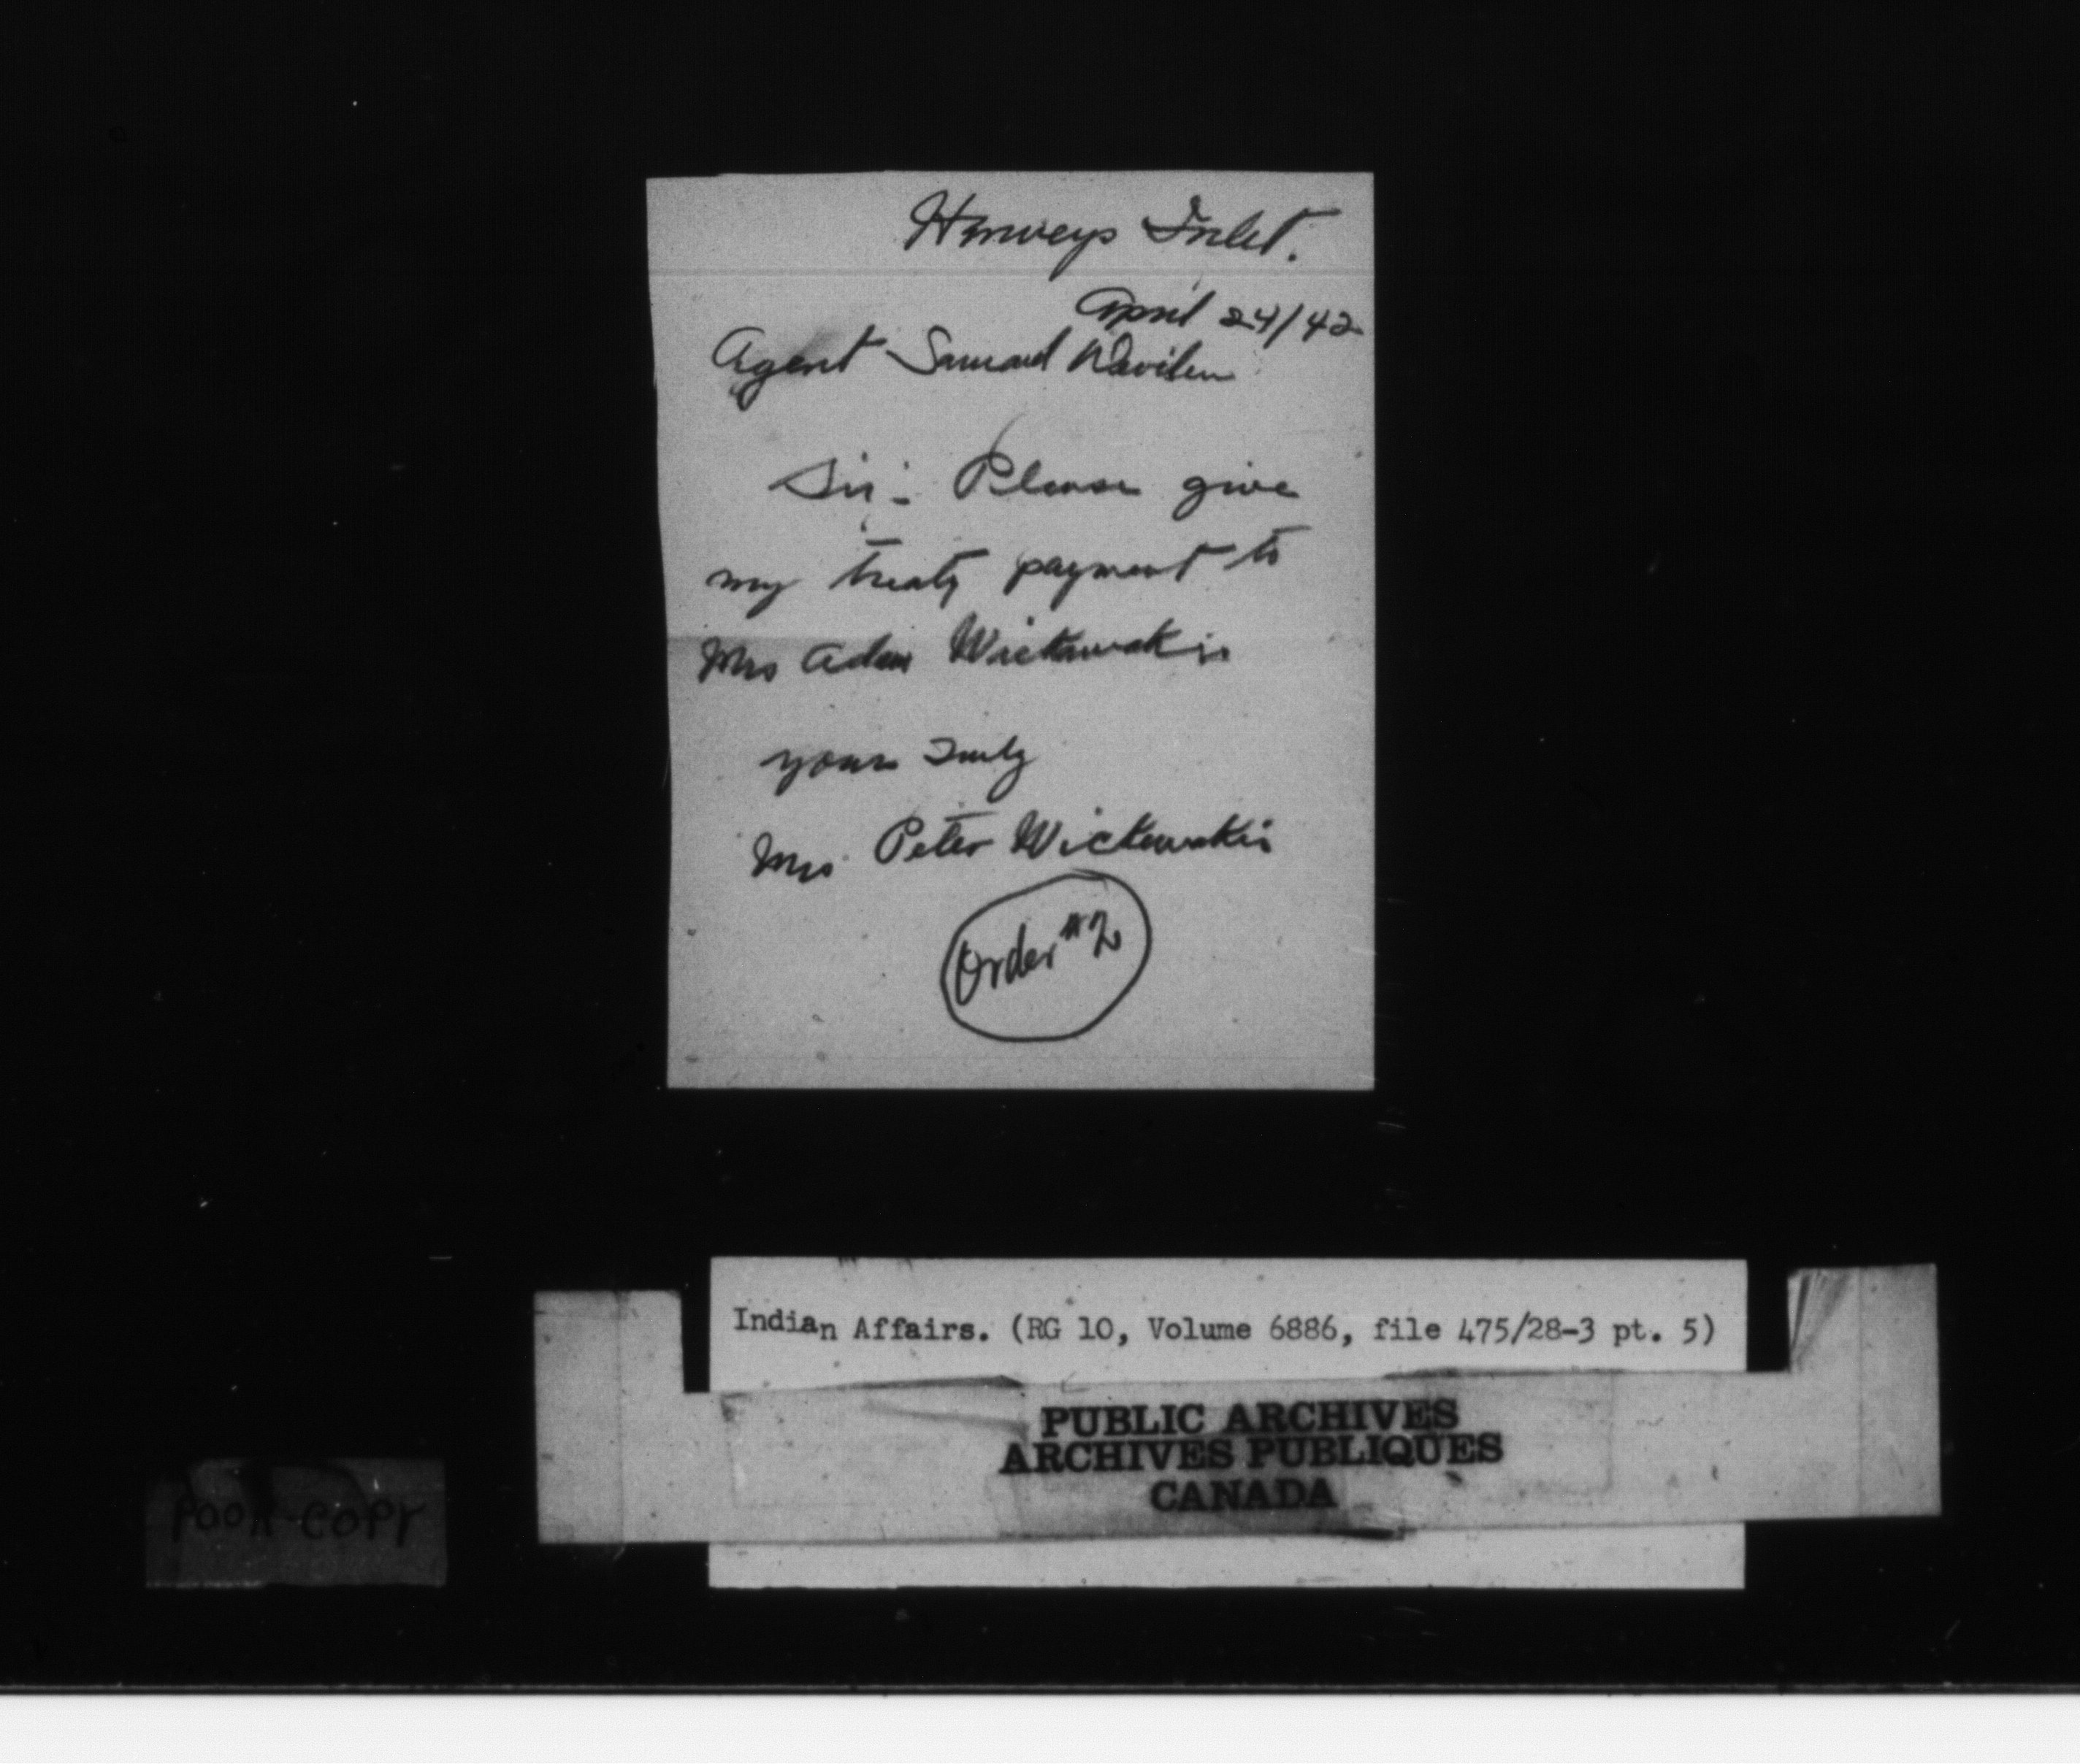 Henveys Inlet.
April 24/42
Agent Samuel Devlin
Sir:- Please give
my treaty payment to
Mrs Adam Wickawakis
yours Truly
Mrs Peter Wickawakis
Order #2
Indian Affairs. (RG 10, Volume 6886, file 475/28-3 pt. 5)
PUBLIC ARCHIVES
ARCHIVES PUBLIQUES
CANADA
POOR COPY